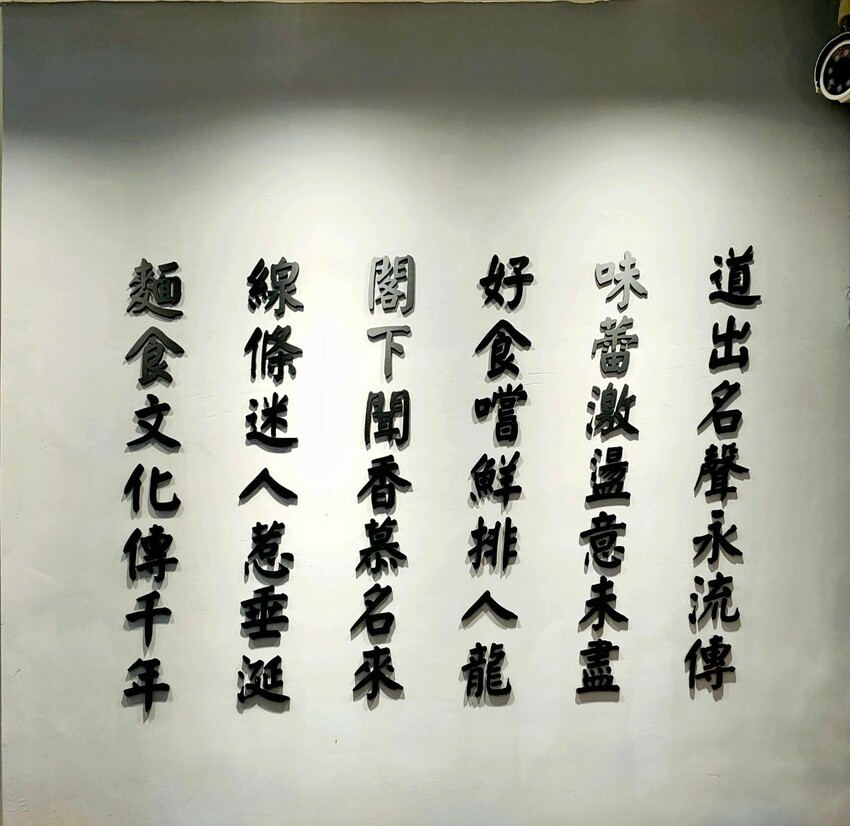 麵食文化傳千年
線條迷人惹垂涎
閣下聞香慕名來
好食嚐鮮排人龍
味蕾激盪意未盡
道出名聲永流傳